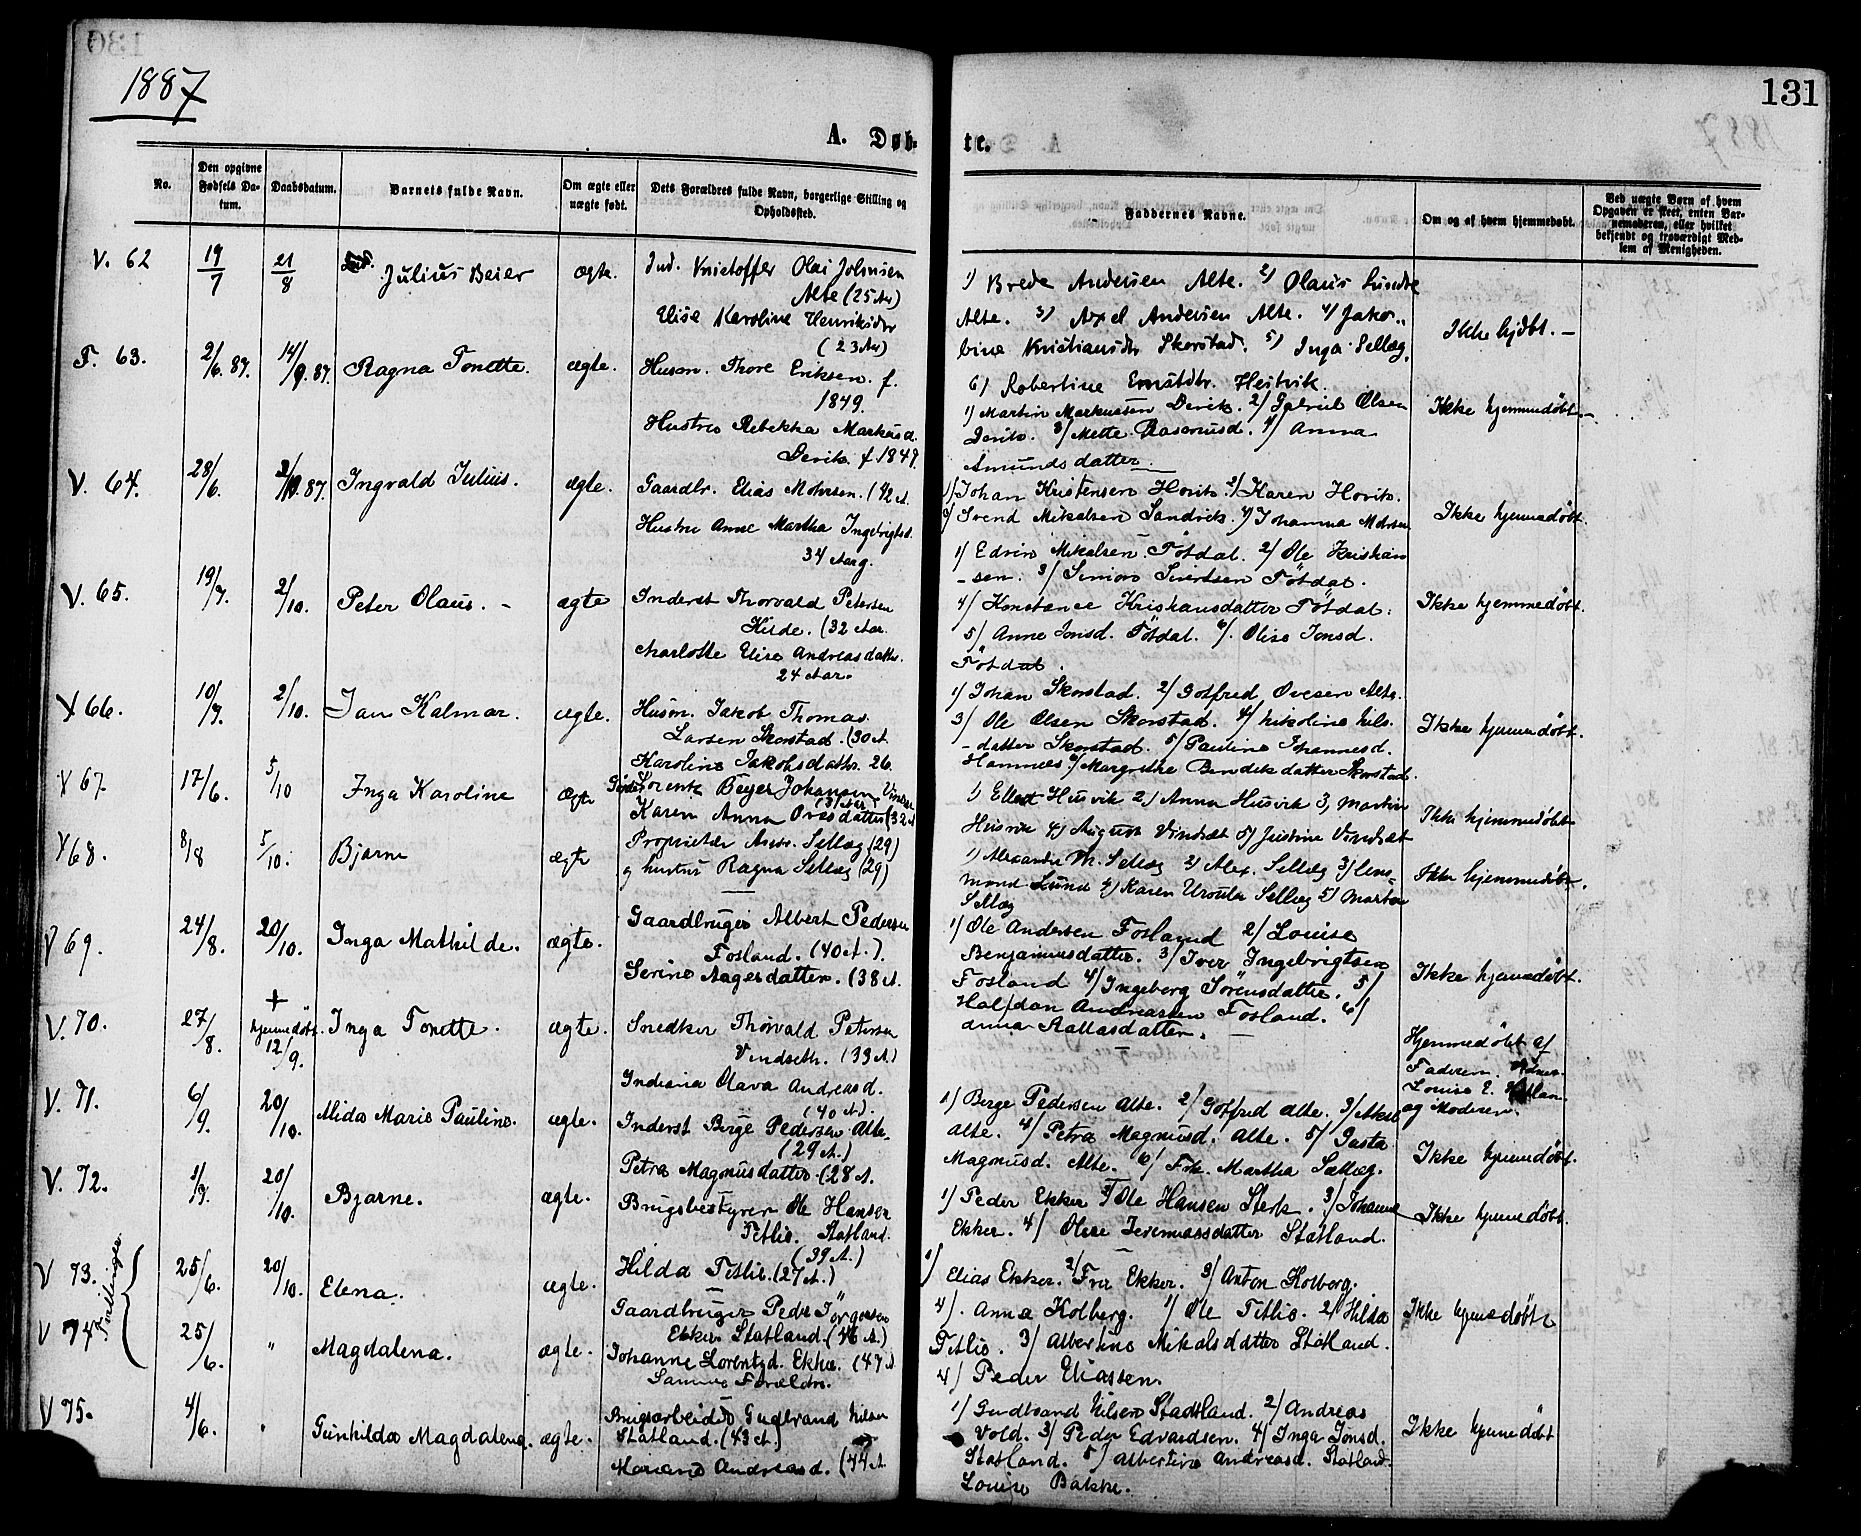 1887
131
A. Døb- te.
No.
Den opgivne Fødsels Da-
tum.
Daabsdatum.
Barnets fulde Navn.
Om ægte eller
uægte født.
Dets Forældres fulde Navn, borgerlige Stilling og
Opholdssted.
Faddernes Navne.
Om og af hvem hjemmedøbt.
Ved uægte Børn af hvem
Opgaven er skeet, enten Bar-
nemoderen, eller hvilket
bekjendt og troværdigt Med-
lem af Menigheden.
V. 62 19/7 21/8 Julius Beier ægte. Ind. Kristoffer Olai Johnsen
Alte (25 Aar)
Elise Karoline Henriksdtr
(23 Aar)
1) Brede Andersen Alte. 2) Olaus
Alte. 3) Axel Andersen Alte. 4) Jako-
bine Kristiansdtr Skorstad. 5) Inga Sellæg.
6) Robertine Ernstdtr. Hestvik.
Ikke hjdbt. -
F. 63. 2/6. 87. 14/9. 87. Ragna Tonette. ægte. Husm. Thore Eriksen. f.
1849.
Hustru Rebekka Markusd.
Dervik. f 1849.
1) Martin Markussen Dervik. 2) Olsen
3) Mette Rasmusd. 4) Anna
Amundsdatter.
Ikke hjemmedøbt. -
V. 64. 28/6. 87. Ingvald Julius. ægte. Gaardbr. Elias Mohrsen. (42 A.
Hustru Anne Martha Ingebrigtsd.
34 Aarg.
1) Johan Kristensen Hovik. 2) Karen Hovik.
3) Svend Mikalsen Sandvik. 4) Johanna Mohrsen
Ikke hjemmedøbt.
V. 65. 19/7. 2/10. Peter Olaus. - ægte Inderst Thorvald Petersen
Hilde. (32 Aar.
Charlotte Elise Andreasdatter.
24 Aar.
1) Edvin Mikalsen Fötdal. 2) Ole Kristian
- sen. 3) Simon Sivertsen Fötdal.
4) Konstance Kristiansdatter Fötdal.
5) Anne Jonsd. Fötdal. 6) Olise Jonsd.
Fötdal.
Ikke hjemmedøbt.
V 66. 10/7. 2/10. Jan Kalmar. ægte. Husm. Jakob Thomas
Larsen Skorstad. (30 A.
Karoline Jakobsdatter. 26.
1) Johan Skorstad. 2) Gotfred Ovesen Alte.
3) Ole Olsen Skorstad. 4) Nikoline Nils-
- datter Skorstad. 5) Pauline Johannesd.
Hamnes 6) Margrethe Bendiksdatter Skorstad.
Ikke hjemmedøbt.
V 67. 17/6. 5/10 Inga Karoline Ægte Lorents Beyer Johansen
(31 Aar)
Karen Anna Ovesdatter (32 A
1) Ellert Husvik 2) Anna Husvik 3) Martin
Husvik 4) August Vindsæt 5) Justine Vindsæt
Ikke hjemmedøbt
V 68. 8/8 5/10. Bjarne ægte Proprietær Sellæg (29)
og hustru Ragna Sellæg (29)
1) Alexander Th. Sellæg 2) Alex. Sellæg 3) Lens-
mand Lund 4) Karen Ursula Sellæg 5) Martha
Sellæg
Ikke hjemmedøbt.
V 69. 24/8. 20/10. Inga Mathilde. ægte. Gaardbruger Albert Pedersen
Fosland. (40 A.).
Serine Aagesdatter. (38 A.
1) Ole Andersen Fosland 2) Louise
Benjaminsdatter. 3) Iver Ingebrigtsen
Fosland 4) Ingeborg Sörensdatter. 5)
Halfdan Andreassen Fosland. 6)
Anna
Ikke hjemmedøbt.
V. 70. 27/8. + hjemmedøbt. 12/9. Inga Tonette. ægte. Snedker Thorvald Petersen
Vindseth. (33 A.)
Indiana Olava Andreasd.
(40 A.).
Hjemmedøbt af
Faderen.
Louise E.
og Moderen.
V. 71. 6/9. 20/10. Alida Marie Pauline. ægte. Inderst Berge Pedersen Alte.
(29 A.)
Petra Magnusdatter (28 A.
1) Berge Pedersen Alte. 2) Gotfred Alte. 3)
Alte. 4) Petra Magnusd. Alte. 5) Gusta
Magnusd. Alte. 6) Frk. Martha Sellæg.
Ikke hjemmedøbt.
V. 72. 1/7. 20/10. Bjarne. ægte. Brugsbestyrer Ole Hansen
Tetlie. Statland.
(39 A.)
Hilda Tetlie. (27 A.)
1) Peder Ekker 2) Ole Hansen Sterk. 3) Johanne
Ekker. 4) Oline Jeremiassdatter Statland.
Ikke hjemmedøbt.
Tvillinger
V 73. 25/6. 20/10. Elena. ægte. Gaardbruger Peder Jörgensen
Ekker Statland. (46 A.)
Johanne Lorentsd. Ekker. (47 A
1) Elias Ekker. 2) Fru Ekker. 3) Anton Kolberg.
4). Anna Kolberg.
Ikke hjemmedøbt
V 74 25/6. " Magdalena. ægte. Samme Forældre.
1) Ole Tetlie. 2) Hilda
Tetlie. 3) Albertine Mikalsdatter Statland.
4) Peder Eliassen.
V 75. 4/6. " Gunhilda Magdalena. ægte. Brugsarbeider Gudbrand Nilsen
Statland. (43 A.)
Mariane Andreasd. (44 A
1) Gudbrand Nilsen Stadtland. 2) Andreas
Vold. 3) Peder Edvardsen. 4) Inga Jonsd.
Statland. 5) Albertine Andreasd. Statland.
Louise Bakke.
Ikke hjemmedøbt